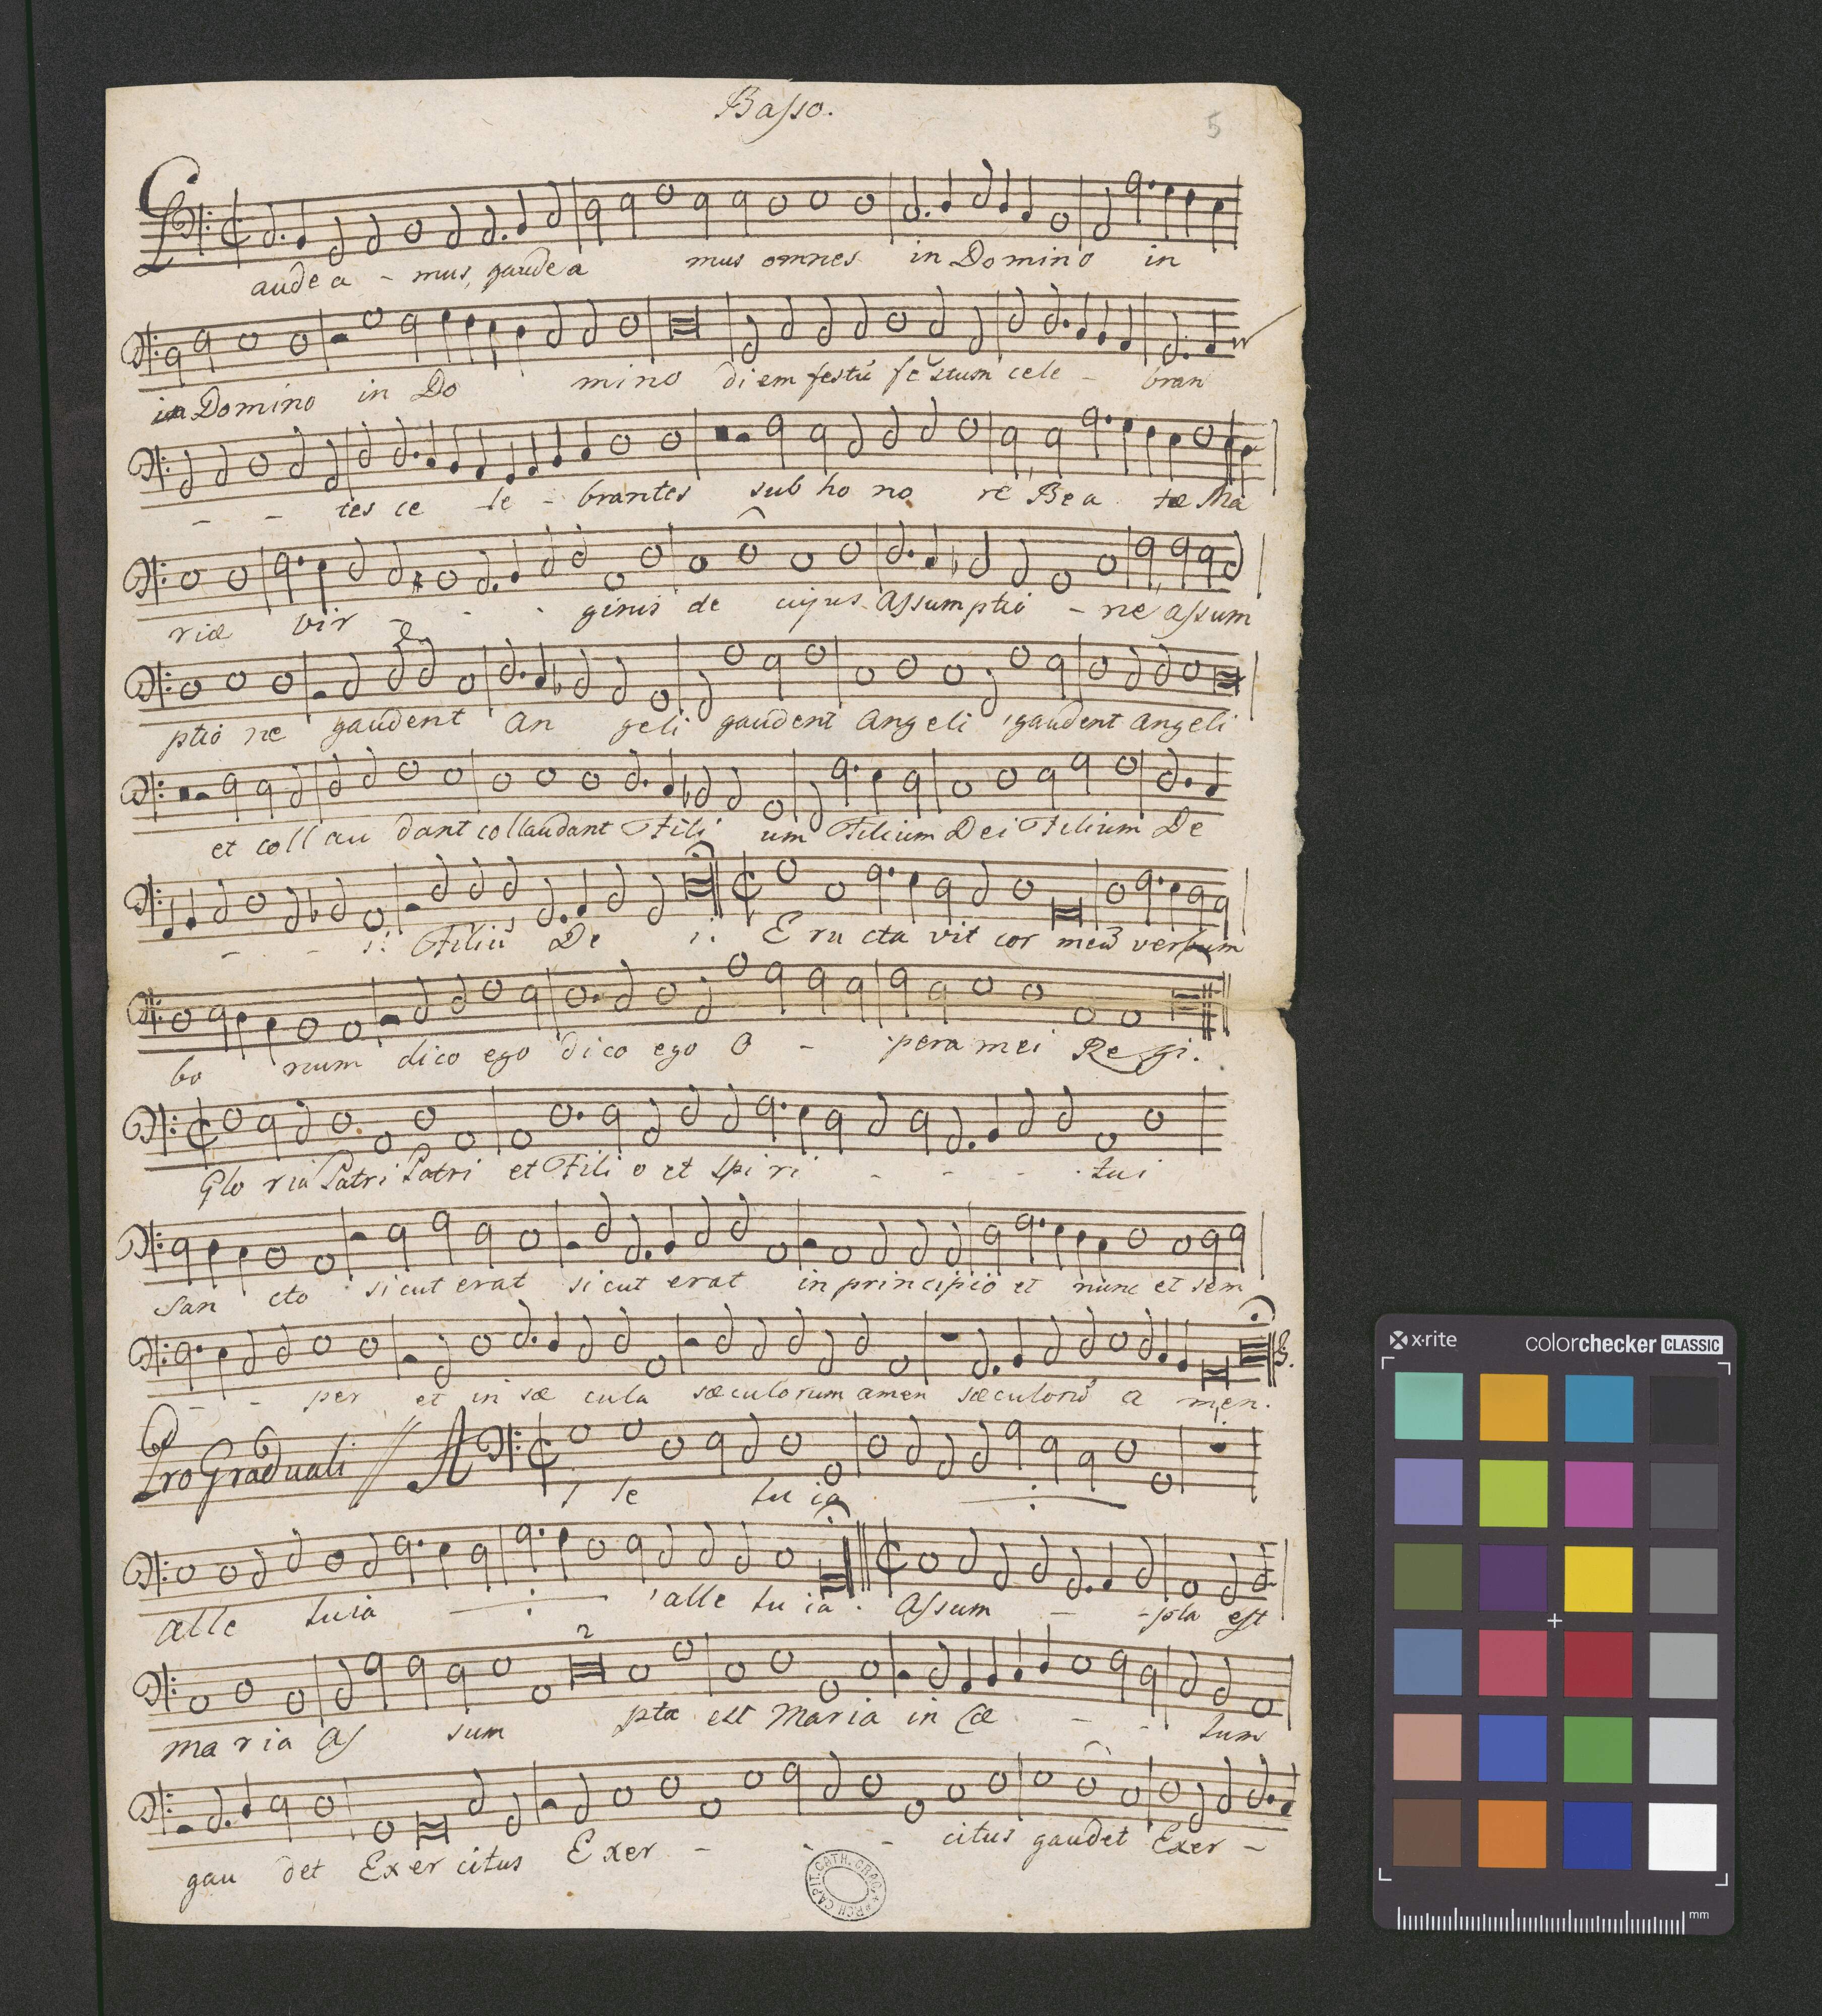 Basso.
5
Gaudea - mus, gaudea mus omnes in Domino in
in Domino in Do mino diem festū festum cele - bran
- - tes ce le - brantes sub ho no re Bea tæ Ma
riæ vir - - - ginis de cujus Assumptio - ne assum
ptio ne gaudent An geli gaudent Angeli gaudent Angeli
et collau dant collaudant Fili um Filium Dei Filium De
- - i: Filiū De i: Eructa vit cor meū verbum
bo num dico ego dico ego O - pera mei Regi.
Glo ria Patri Patri et Fili o et Spi ri - - - tui
San cto sicut erat sicut erat in principio et nunc et sem
- - per et in sæ cula sæculorum amen sæculorū a men.
Pro Graduali // A l le lu ia
alle luia 'alle lu ia. Assum - - pta est
Maria As sum pta est Maria in Cæ - - lum
gau det Exercitus Exer - - - citus gaudet Exer -
ARCH. CAPIT. CATH. CRAC.
x·rite
colorchecker CLASSIC
mm